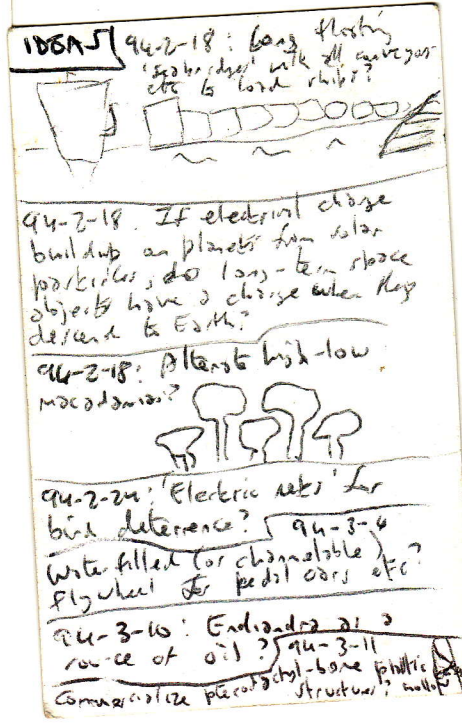 IDEAS 94-2-18: Long floating
'seabridges' with all conveyor
etc to load ships?
94-2-18. If electrical charge
buildup on planets from solar
particles, do long-term space
objects have a charge when they
descend to Earth?
94-2-18: Alternate high-low
macadamias?
94-2-24: 'Electric nets' for
bird deterrence?
94-3-4
Water filled (or channelable)
flywheel for pedal cars etc?
94-3-10: Endiandra as a
source of oil?
94-3-11
Commercialize pterodactyl-bone
structures; hollow